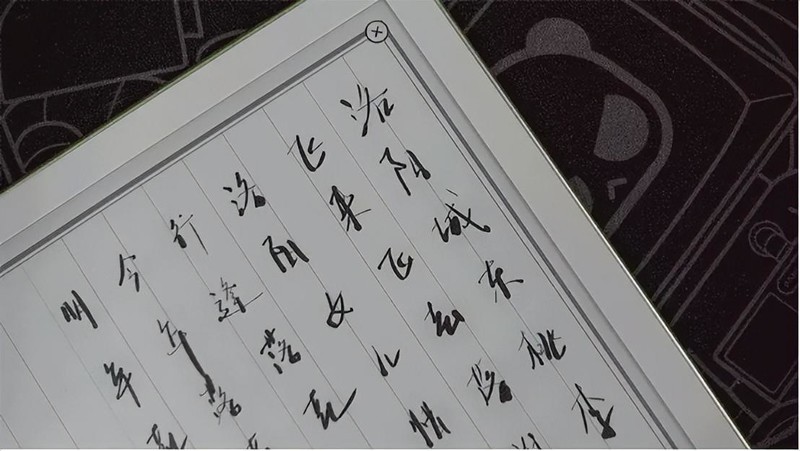 洛阳城东桃李
飞来飞去落
洛阳女儿惜
行逢落花
今年落
明年花